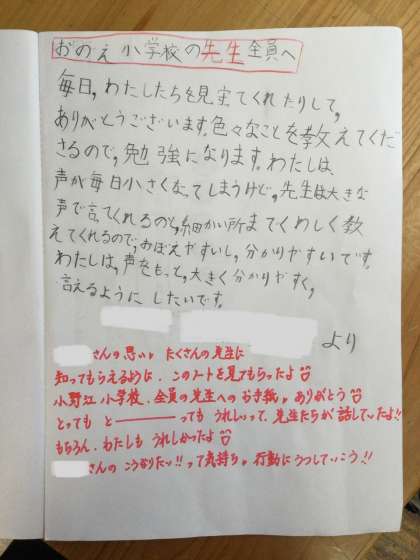 おのえ小学校の先生全員へ
毎日，わたしたちを見実てくれたりして，
ありがとうございます。色々なことを教えてくだ
さるので，勉強になります。わたしは
声が毎日小さくなってしまうけど，先生は大きな
声で言ってくれるのと，細かい所までくわしく教
えてくれるので，おぼえやすいし，分かりやすいです。
わたしは，声をもっと，大きく分かりやすく，
言えるように したいです。
より
さんの思い，たくさんの先生に
知ってもらえるように，このノートを見てもらったよ
小野江小学校，全員の先生へのお手紙，ありがとう
とっても と――――ってもうれしいって，先生たちが話していたよ!!
もちろん，わたしもうれしかったよ
さんの こうなりたい!!って気持ち，行動にうつしていこう!!